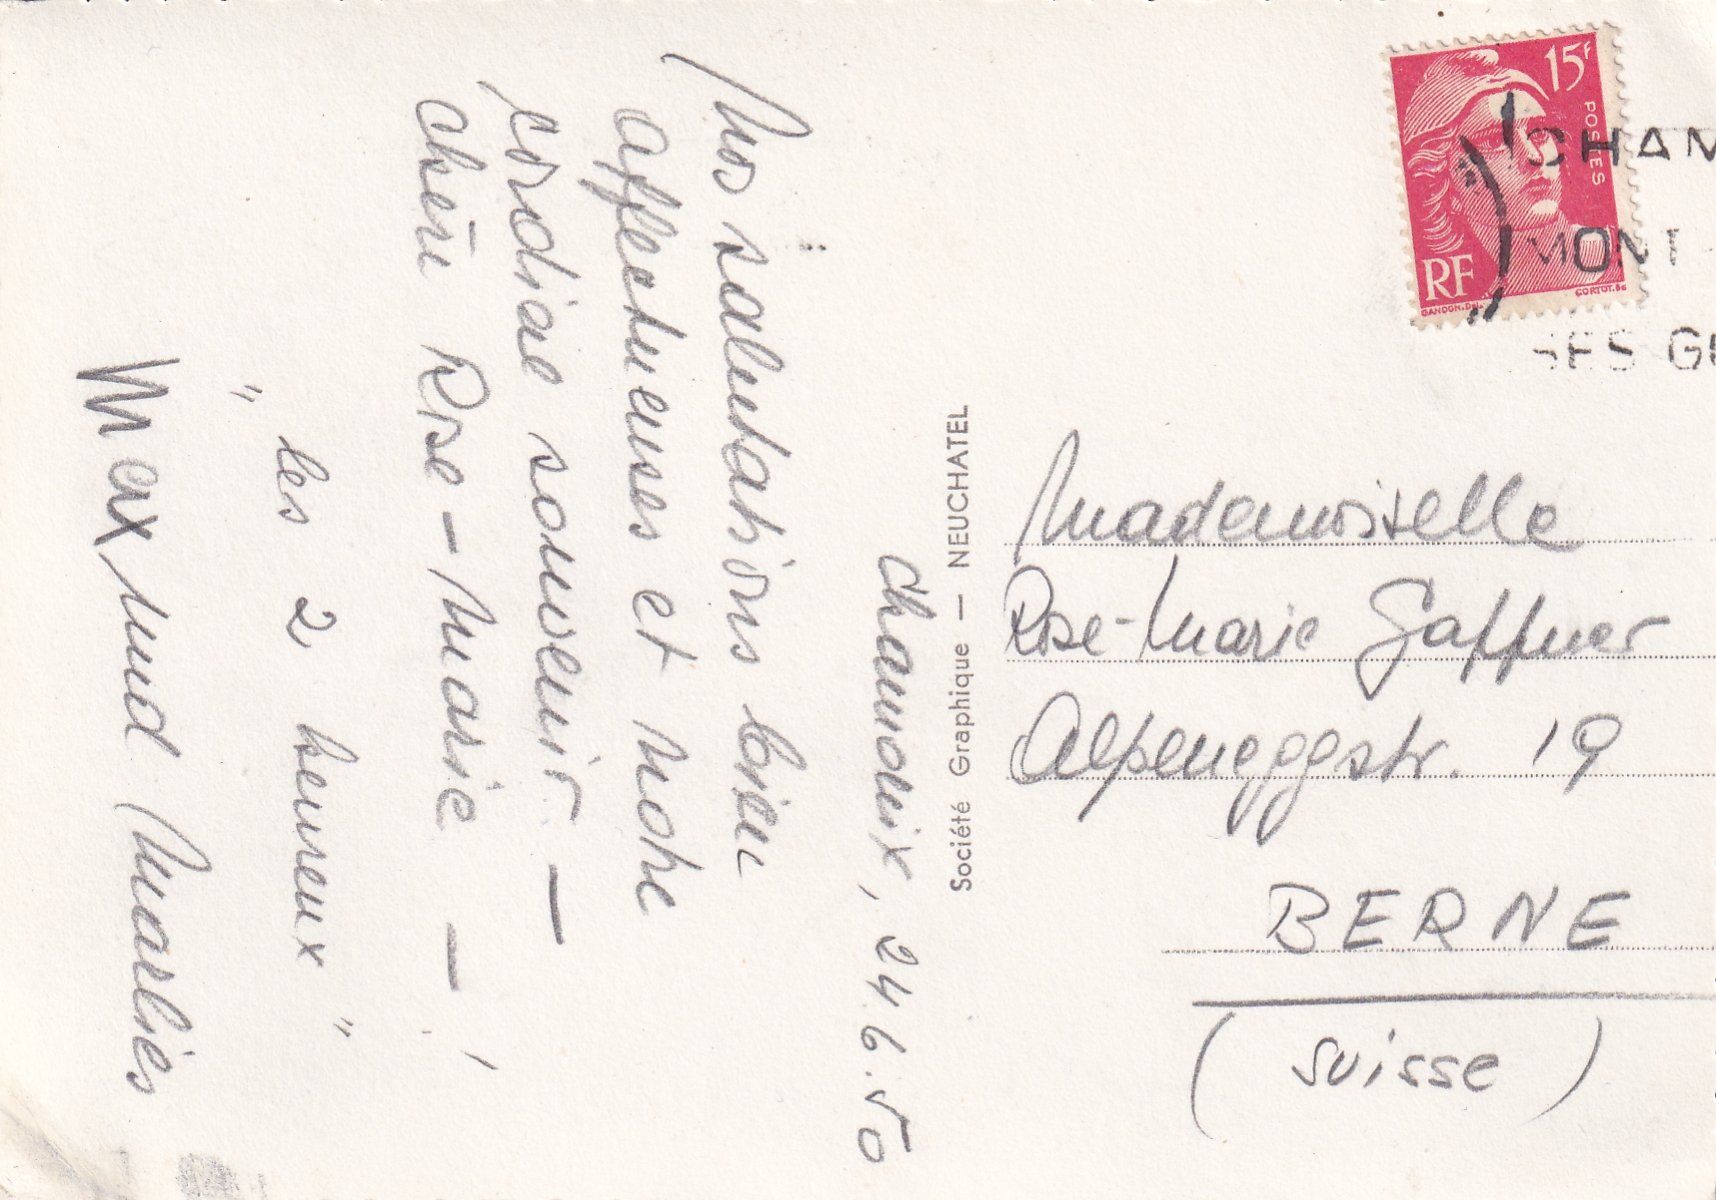 Chamonix, 24.6.50
Nos salutations bien
affectueuses et notre
cordial souvenir -
chère Rose-Marie -
" les 2 heureux "
Max und Marlies
Société Graphique — NEUCHATEL
15F
POSTES
RF
GANDON.DEL.
CORTOT.SC
CHAM
MONT-
SES G
Mademoiselle
Rose-Marie Gaffner
Alpeneggstr. 19
BERNE
(Suisse)